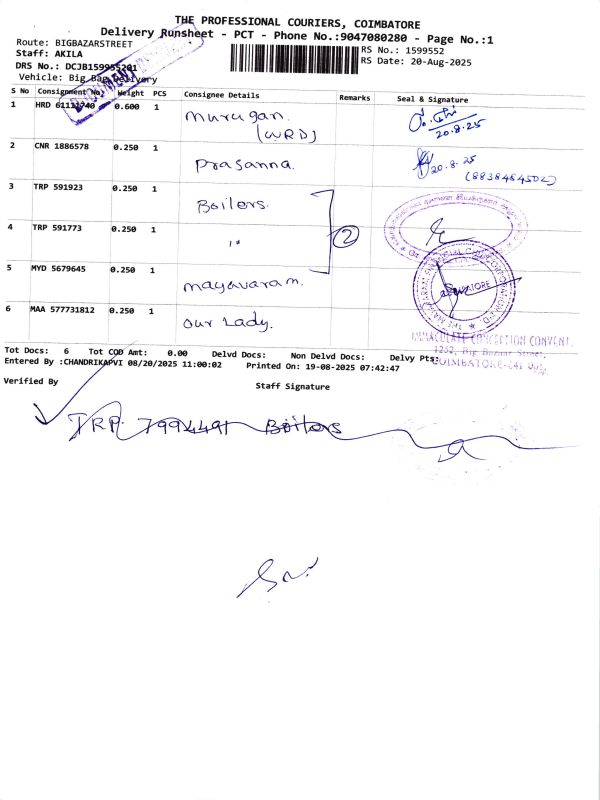 THE PROFESSIONAL COURIERS, COIMBATORE
Delivery Runsheet - PCT - Phone No.:9047080280 - Page No.:1
Route: BIGBAZARSTREET
Staff: AKILA
DRS No.: DCJB159955201
Vehicle: Big Bag Delivery
RS No.: 1599552
RS Date: 20-Aug-2025
S No Consignment No Weight PCS Consignee Details Remarks Seal & Signature
1 HRD 61111740 0.600 1 Murugan. (WRD) 20.8.25
2 CNR 1886578 0.250 1 Prasanna. 20.8.25
3 TRP 591923 0.250 1 Boilers.
4 TRP 591773 0.250 1 " 2
5 MYD 5679645 0.250 1 mayavaram.
6 MAA 577731812 0.250 1 our Lady.
COIMBATORE
IMMACULATE CONCEPTION CONVENT,
1252, Big Bazaar Street,
COIMBATORE-641 001.
Tot Docs: 6 Tot COD Amt: 0.00 Delvd Docs: Non Delvd Docs: Delvy Pts:
Entered By :CHANDRIKAPVI 08/20/2025 11:00:02 Printed On: 19-08-2025 07:42:47
Verified By
Staff Signature
TRP 7994491 Boilers